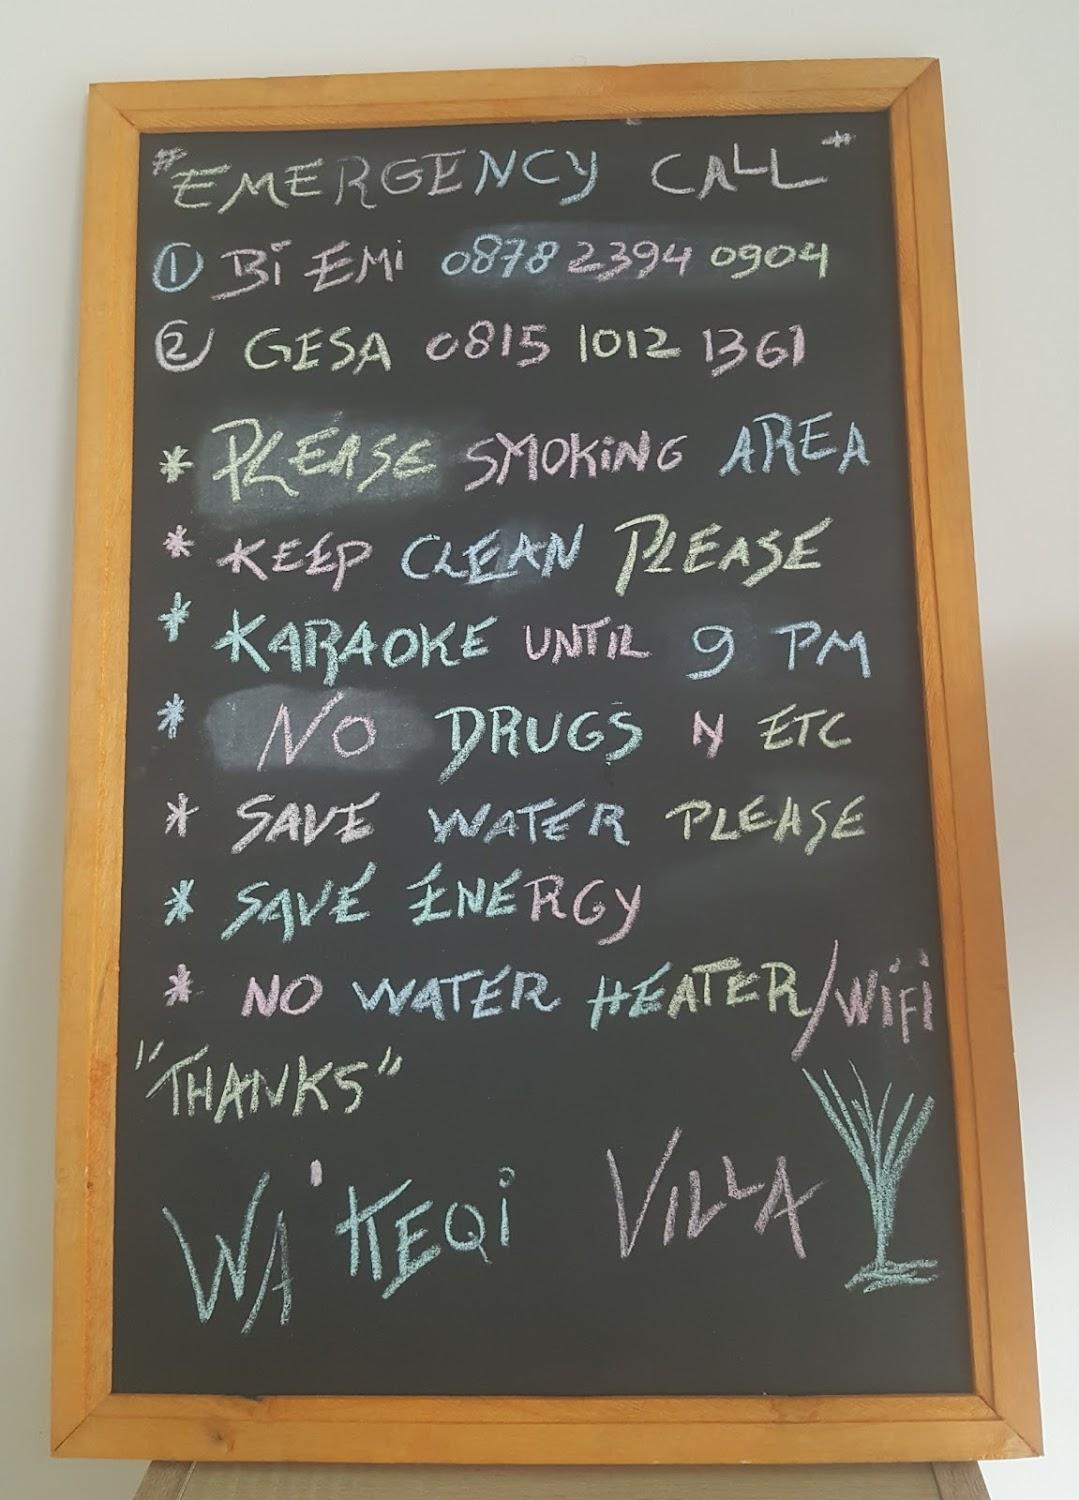 "EMERGENCY CALL"
① Bi EMi 0878 2394 0904
② GESA 0815 1012 1361
* PLEASE SMOKiNG AREA
* KEEP CLEAN PLEASE
* KARAOKE UNTIL 9 PM
* NO DRUGS N ETC
* SAVE WATER PLEASE
* SAVE ENERGY
* NO WATER HEATER/WiFi
"THANKS"
WA'KEQi VILLA